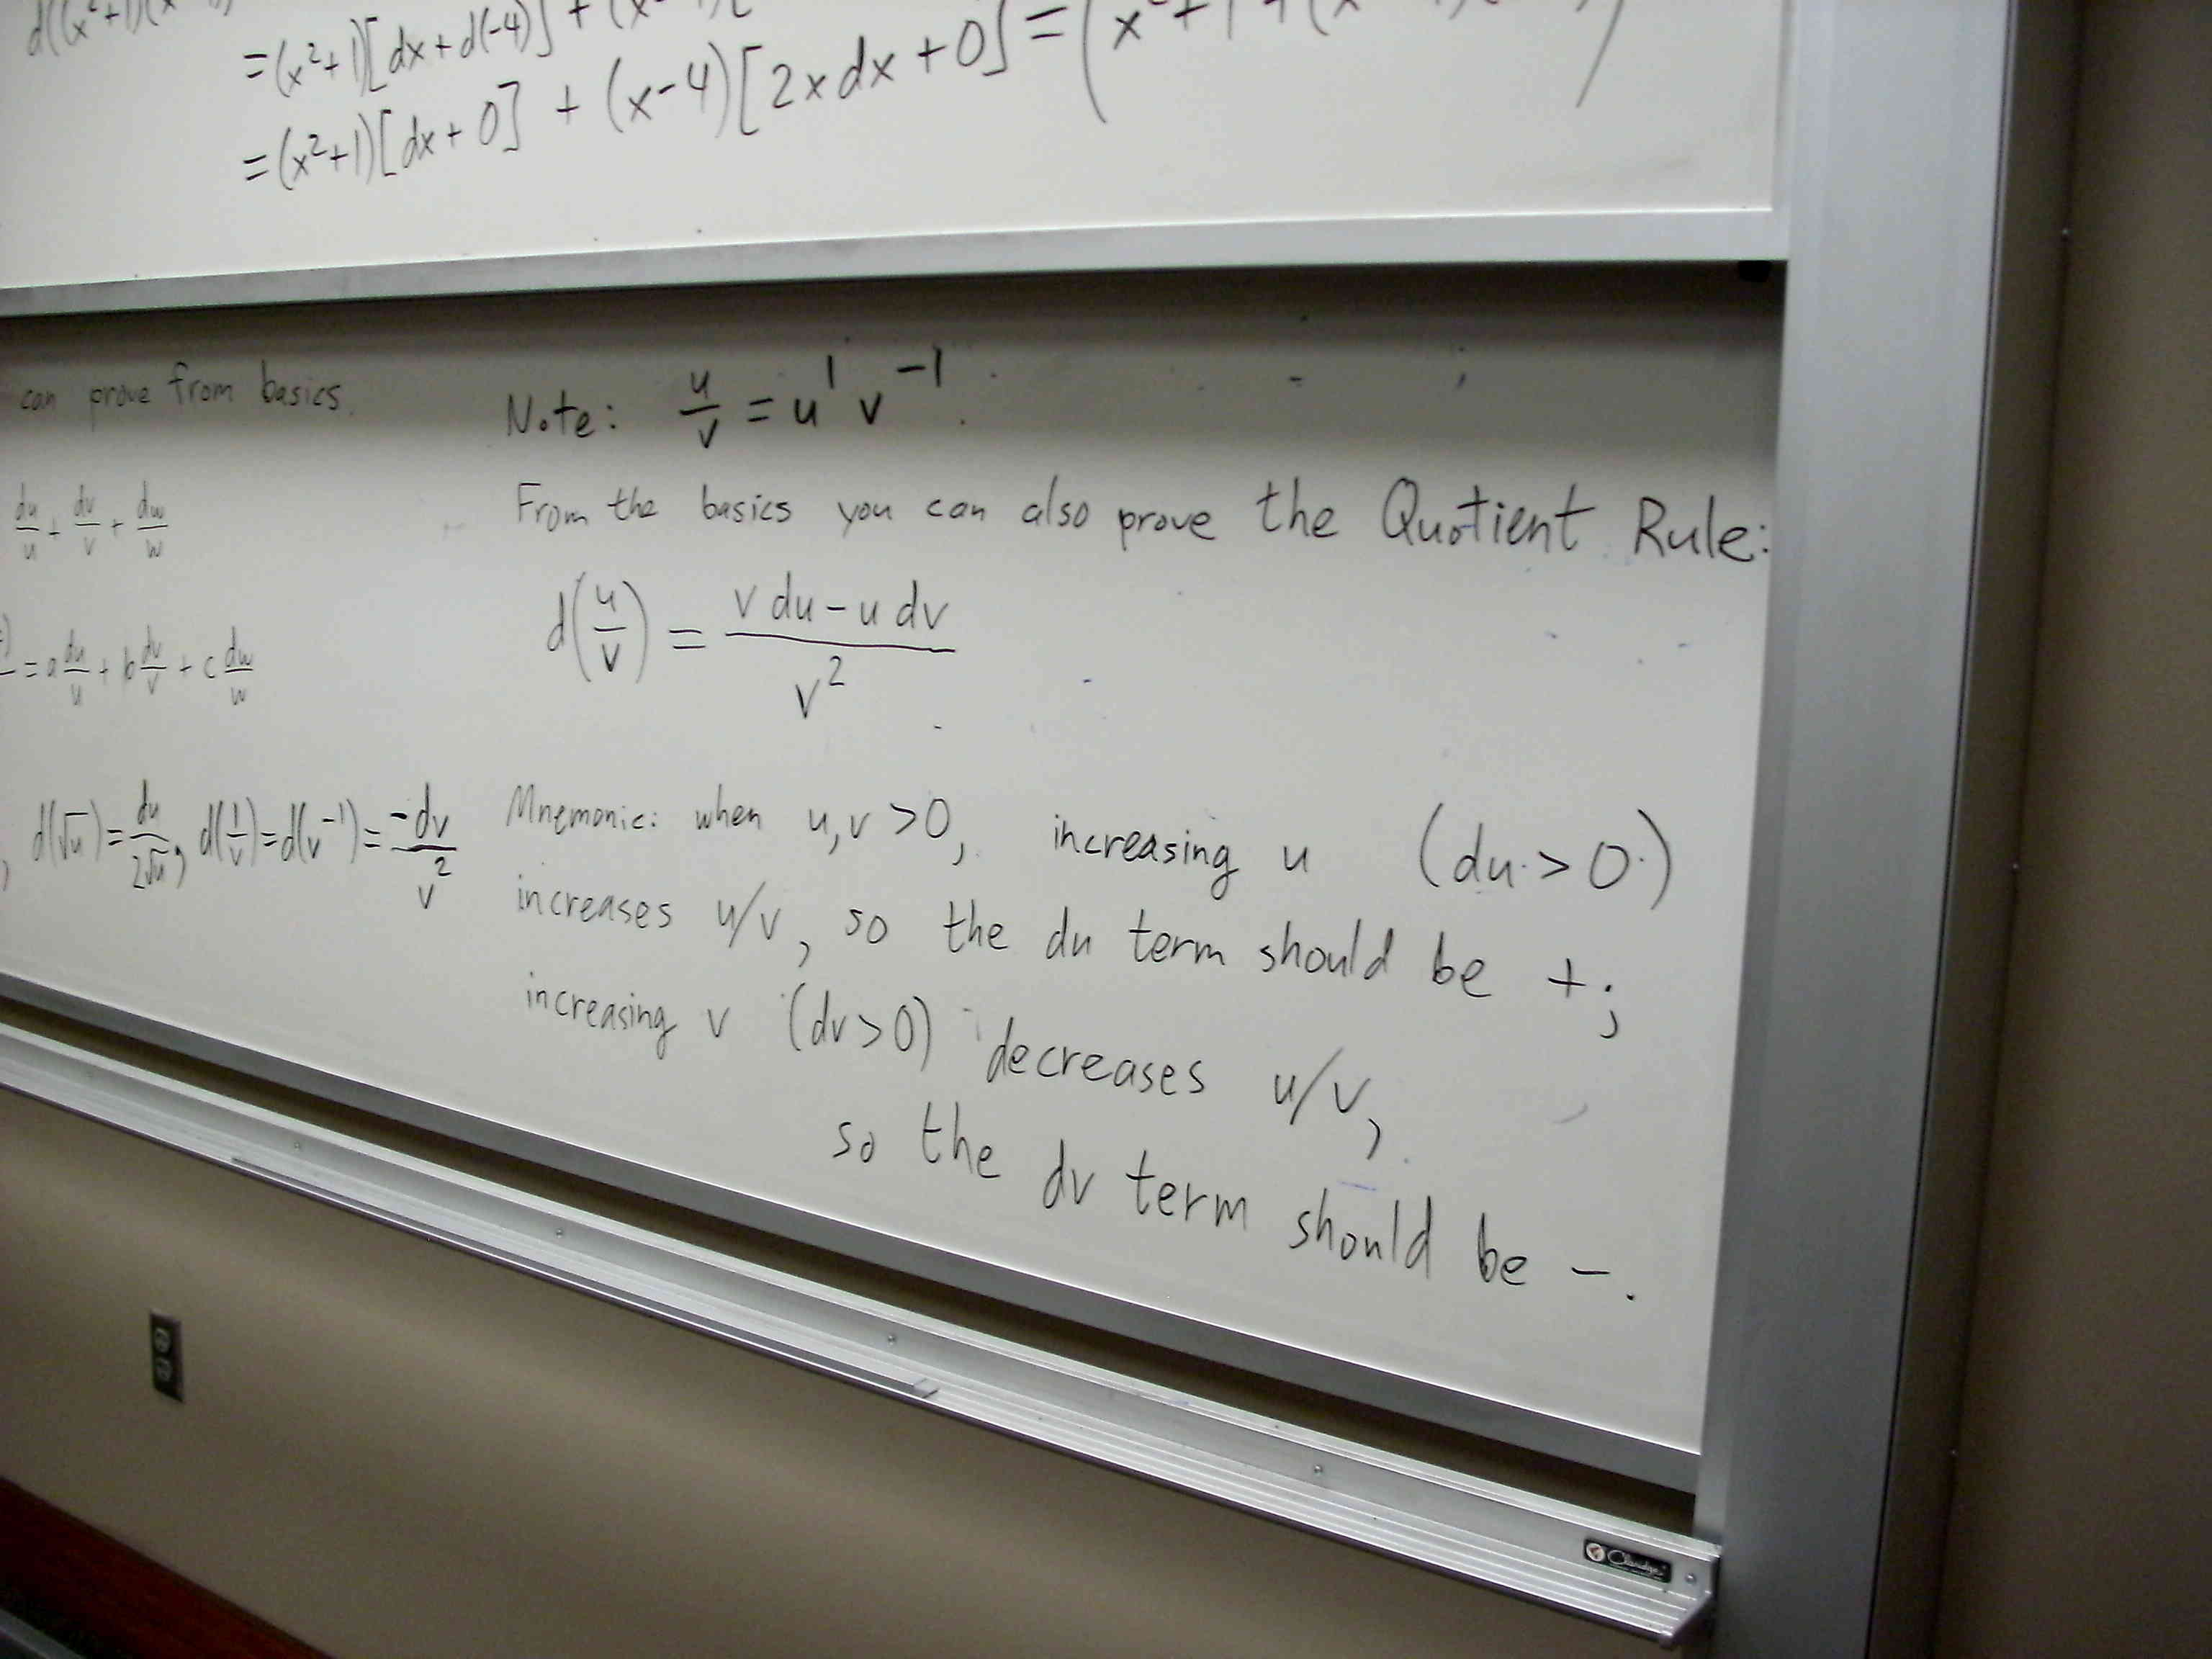 d((x²+1)(x
=(x²+1)[dx+d(-4)] + (x
=(x²+1)[dx+0] + (x-4)[2x dx + 0] = (x²+1+(x
can prove from basics.
du/u + dv/v + dw/w
= a du/u + b dv/v + c dw/w
, d(√u) = du/2√u, d(1/v) = d(v⁻¹) = -dv/v²
Note: u/v = u¹ v⁻¹.
From the basics you can also prove the Quotient Rule:
d(u/v) = (v du - u dv)/v²
Mnemonic: when u,v >0, increasing u (du > 0)
increases u/v, so the du term should be +;
increasing v (dv>0) decreases u/v,
so the dv term should be -.
Claridge